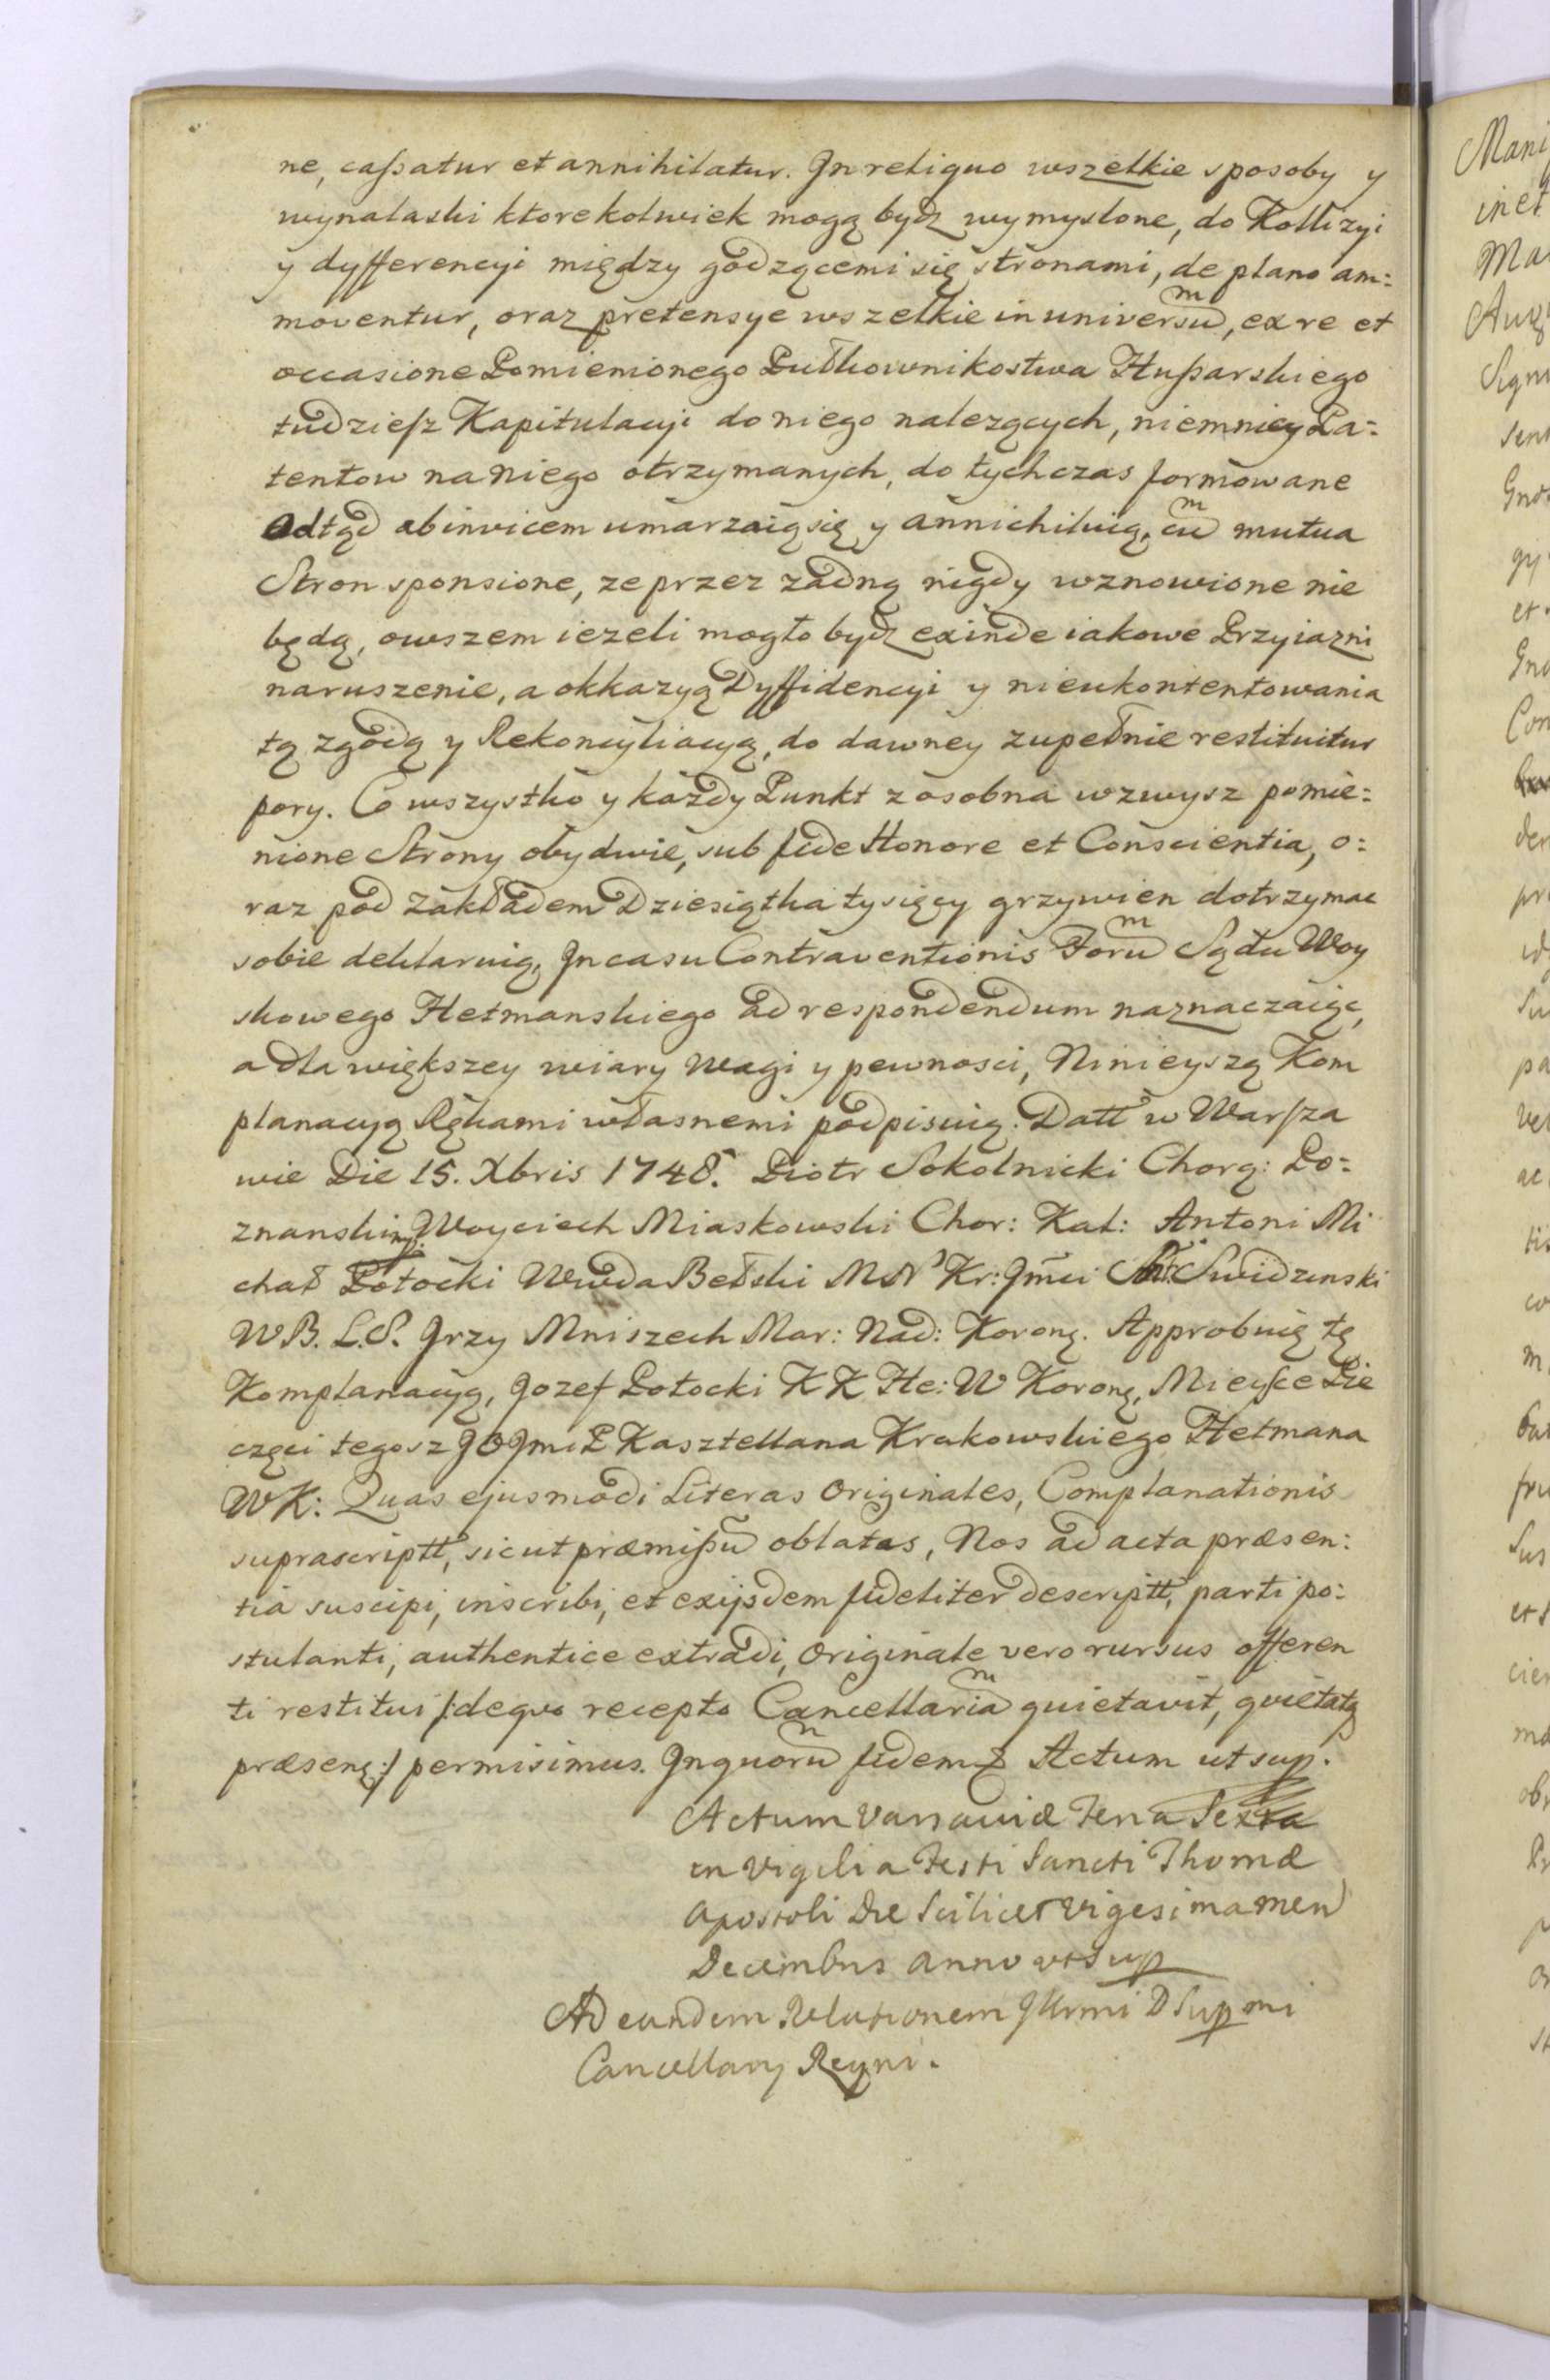 ne, cassatur et annihilatur. In reliquo wszelkie sposoby y
wynalaski ktorekolwiek mogą bydz wymyslone, do Kollizyi
y dyfferencyi między godzącemi się stronami, de plano am:
moventur, oraz pretensye wszelkie in universum, ex re et
occasione Pomienionego Pułkownikostwa Hussarskiego
tudziesz Kapitulacyi do niego nalezących, niemniey Pa:
tentow na niego otrzymanych, do tychczas formowane
odtąd ab invicem umarzaią się y annichiluią, cum mutua
Stron sponsione, ze przez zadną nigdy wznowione nie
będą, owszem iezeli mogło bydz exinde iakowe Przyiazni
naruszenie, a okkazyą Dyffidencyi y nieukontentowania
tą zgodą y Rekoncyliacyą, do dawney zupełnie restituitur
pory. Co wszystko y kazdy Punkt zosobna wzwysz pomie:
nione Strony obydwie, sub fide Honore et Conscientia, o:
raz pod zakładem Dziesiątka tysięcy grzywien dotrzymac
sobie deklaruią, In casu Contraventionis Forum Sądu Woy
skowego Hetmanskiego ad respondendum naznaczaiąc,
a dla większey wiary wagi y pewnosci, Ninieyszą Kom
planacyą Rękami własnemi podpisuią. Datt w Warsza
wie Die 15. Xbris 1748. Piotr Sokolnicki Chorą: Po:
znanski mp. Woyciech Miaskowski Chor: Kal: Antoni Mi
chał Potocki Wwda Bełski MN Kr: Jmci Swidzinski
WB. L.S. Jrzy Mniszech Mar: Nad: Koronę. Approbuię tę
Komplanacyą, Jozef Potocki KK He: W Koronę, Mieysce Pie
częci tegosz JOJmci P Kasztellana Krakowskiego Hetmana
WK: Quas ejusmodi Literas Originales, Complanationis
suprascriptt, sicut præmissũ oblatas, Nos ad acta præsen:
tia suscipi, inscribi, et exijsdem fideliter descriptt, parti po:
stulanti, authentice extradi, Originale vero rursus offeren
ti restitui /:de quo recepto Cancellariam quietavit, quietatq
præsenę:/ permisimus. In quorum fidem Actum ut sup.
Actum Varsaviæ Feria Sexta
in Vigilia Festi Sancti Thomæ
Apostoli Die Scilicet vigesima men
Decembris Anno ut Sup
Ad eandem Relationem Illrmi D Supmi
Cancellarij Regni.